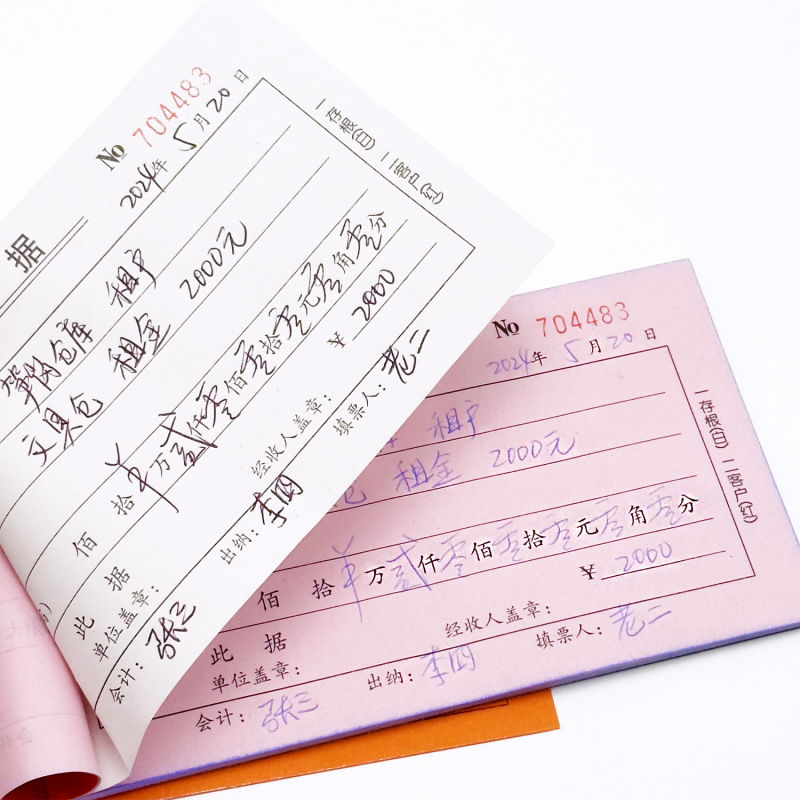 据
No 704483
2024年 5月20日
仓库 租户
文具仓 租金 2000元
佰 拾 羊万贰仟零佰零拾零元零角零分
¥ 2000
此 据
单位盖章: 经收人盖章:
会计: 张三 出纳: 李四 填票人: 老二
一存根(白) 二客户(红)
No 704483
2024年 5月20日
租户
仓 租金 2000元
佰 拾 羊万贰仟零佰零拾零元零角零分
¥ 2000
此 据
单位盖章: 经收人盖章:
会计: 张三 出纳: 李四 填票人: 老二
一存根(白) 二客户(红)